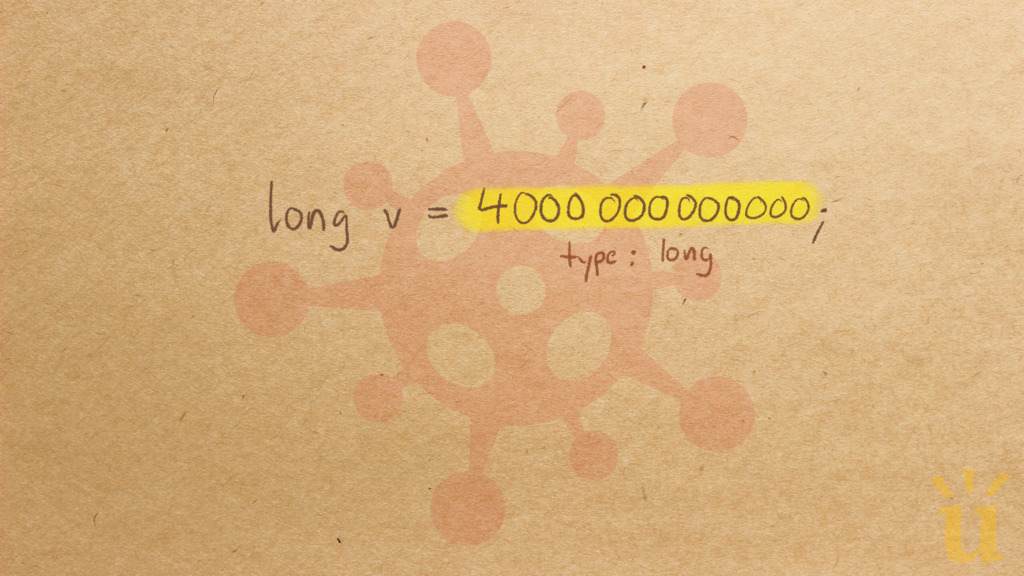 long v = 4000 000 000000;
type: long
u